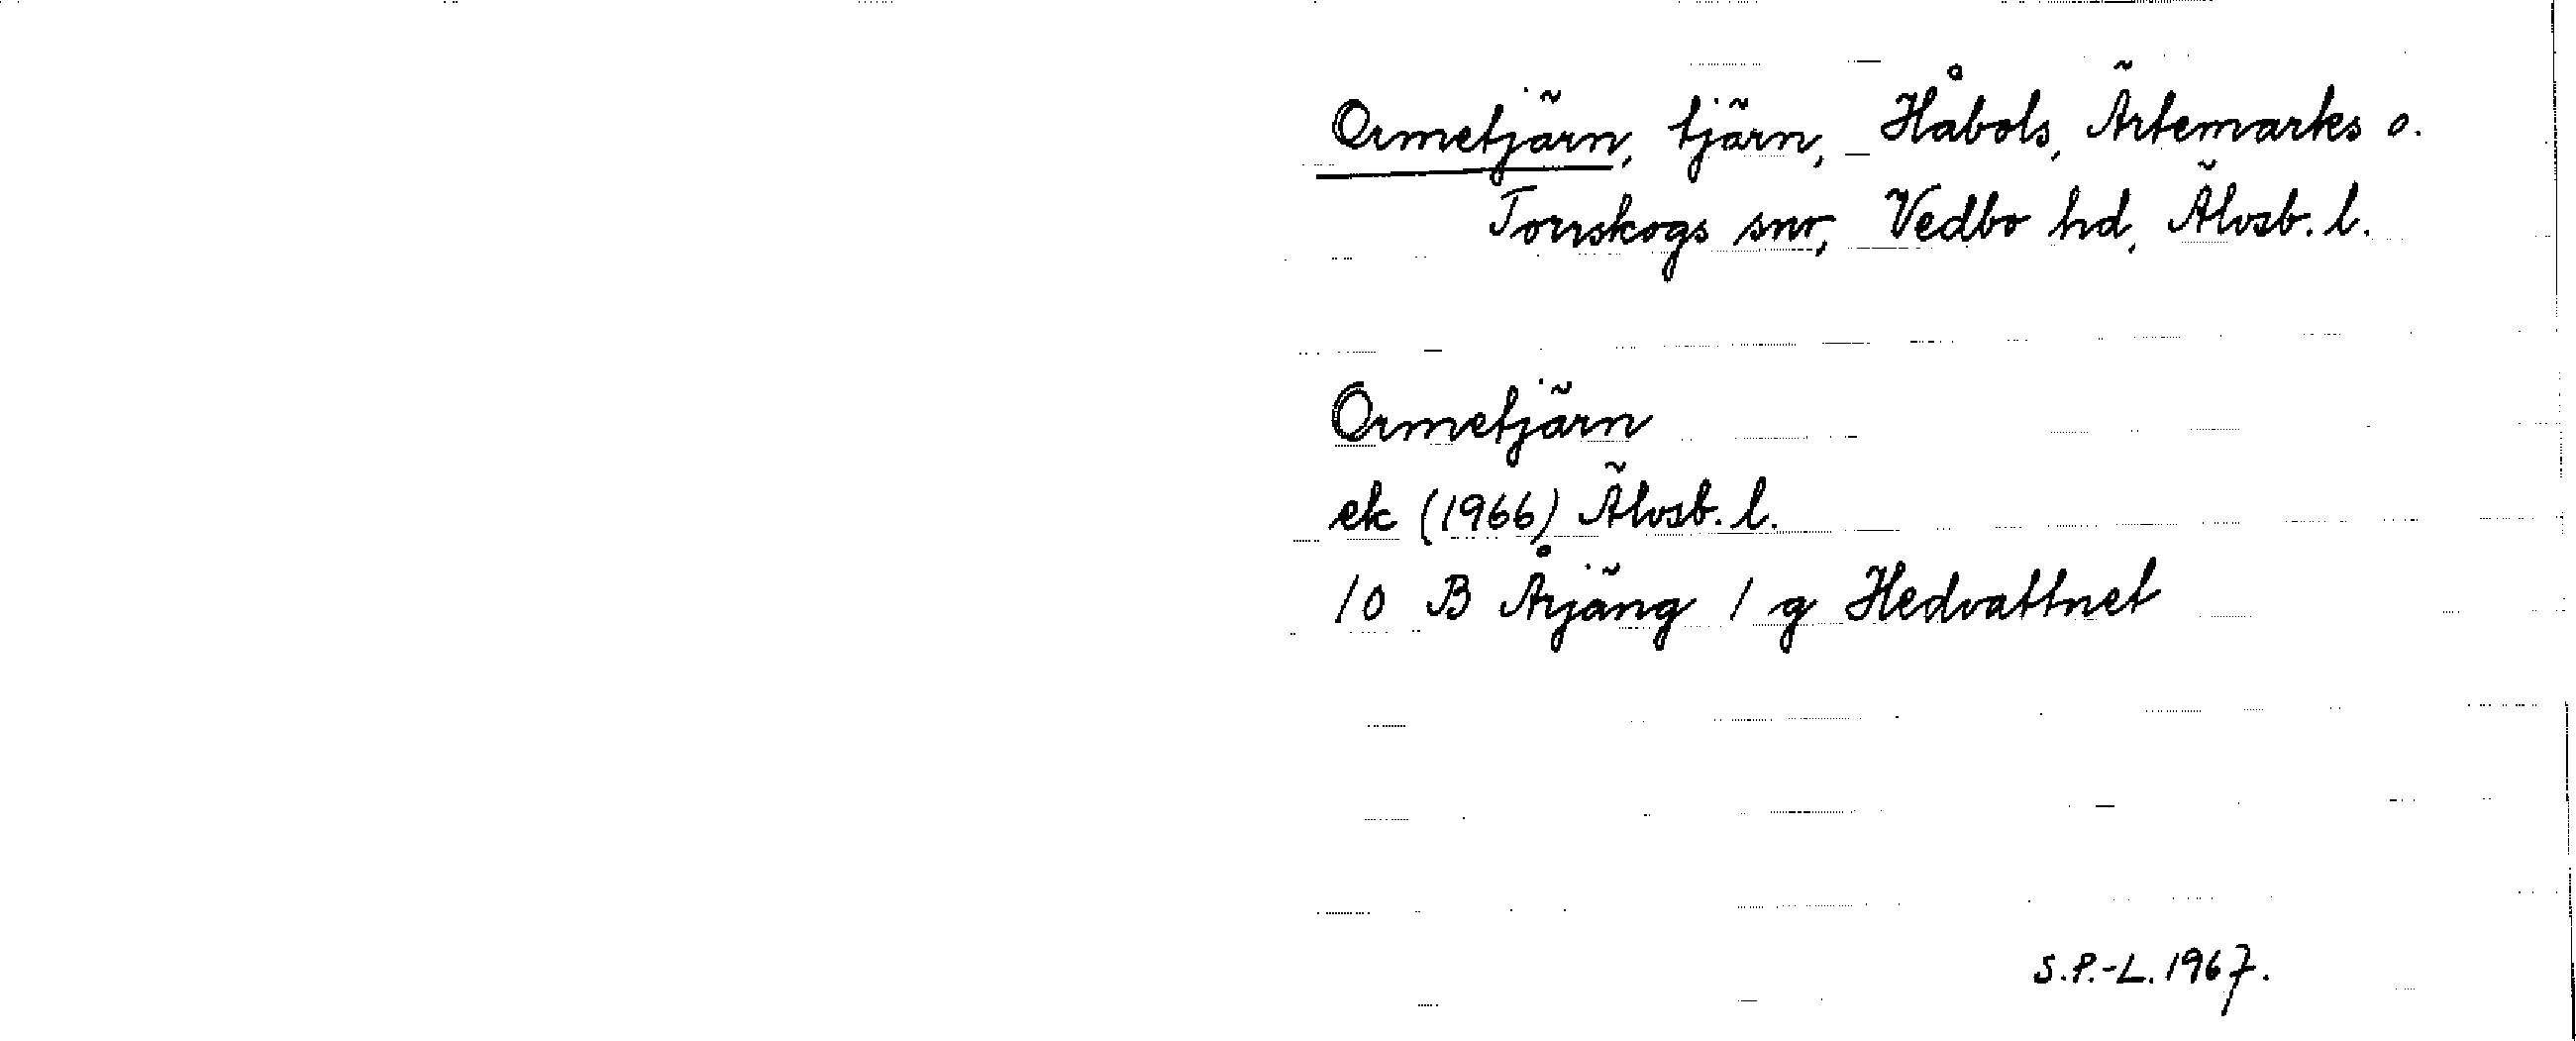 Ormetjärn, tjärn, Håbols, Ärtemarks o.
Torrskogs snr, Vedbo hd, Älvsb. l.
Ormetjärn
ek (1966) Älvsb. l.
10 B Årjäng 1 g Hedvattnet
S.P.-L. 1967.